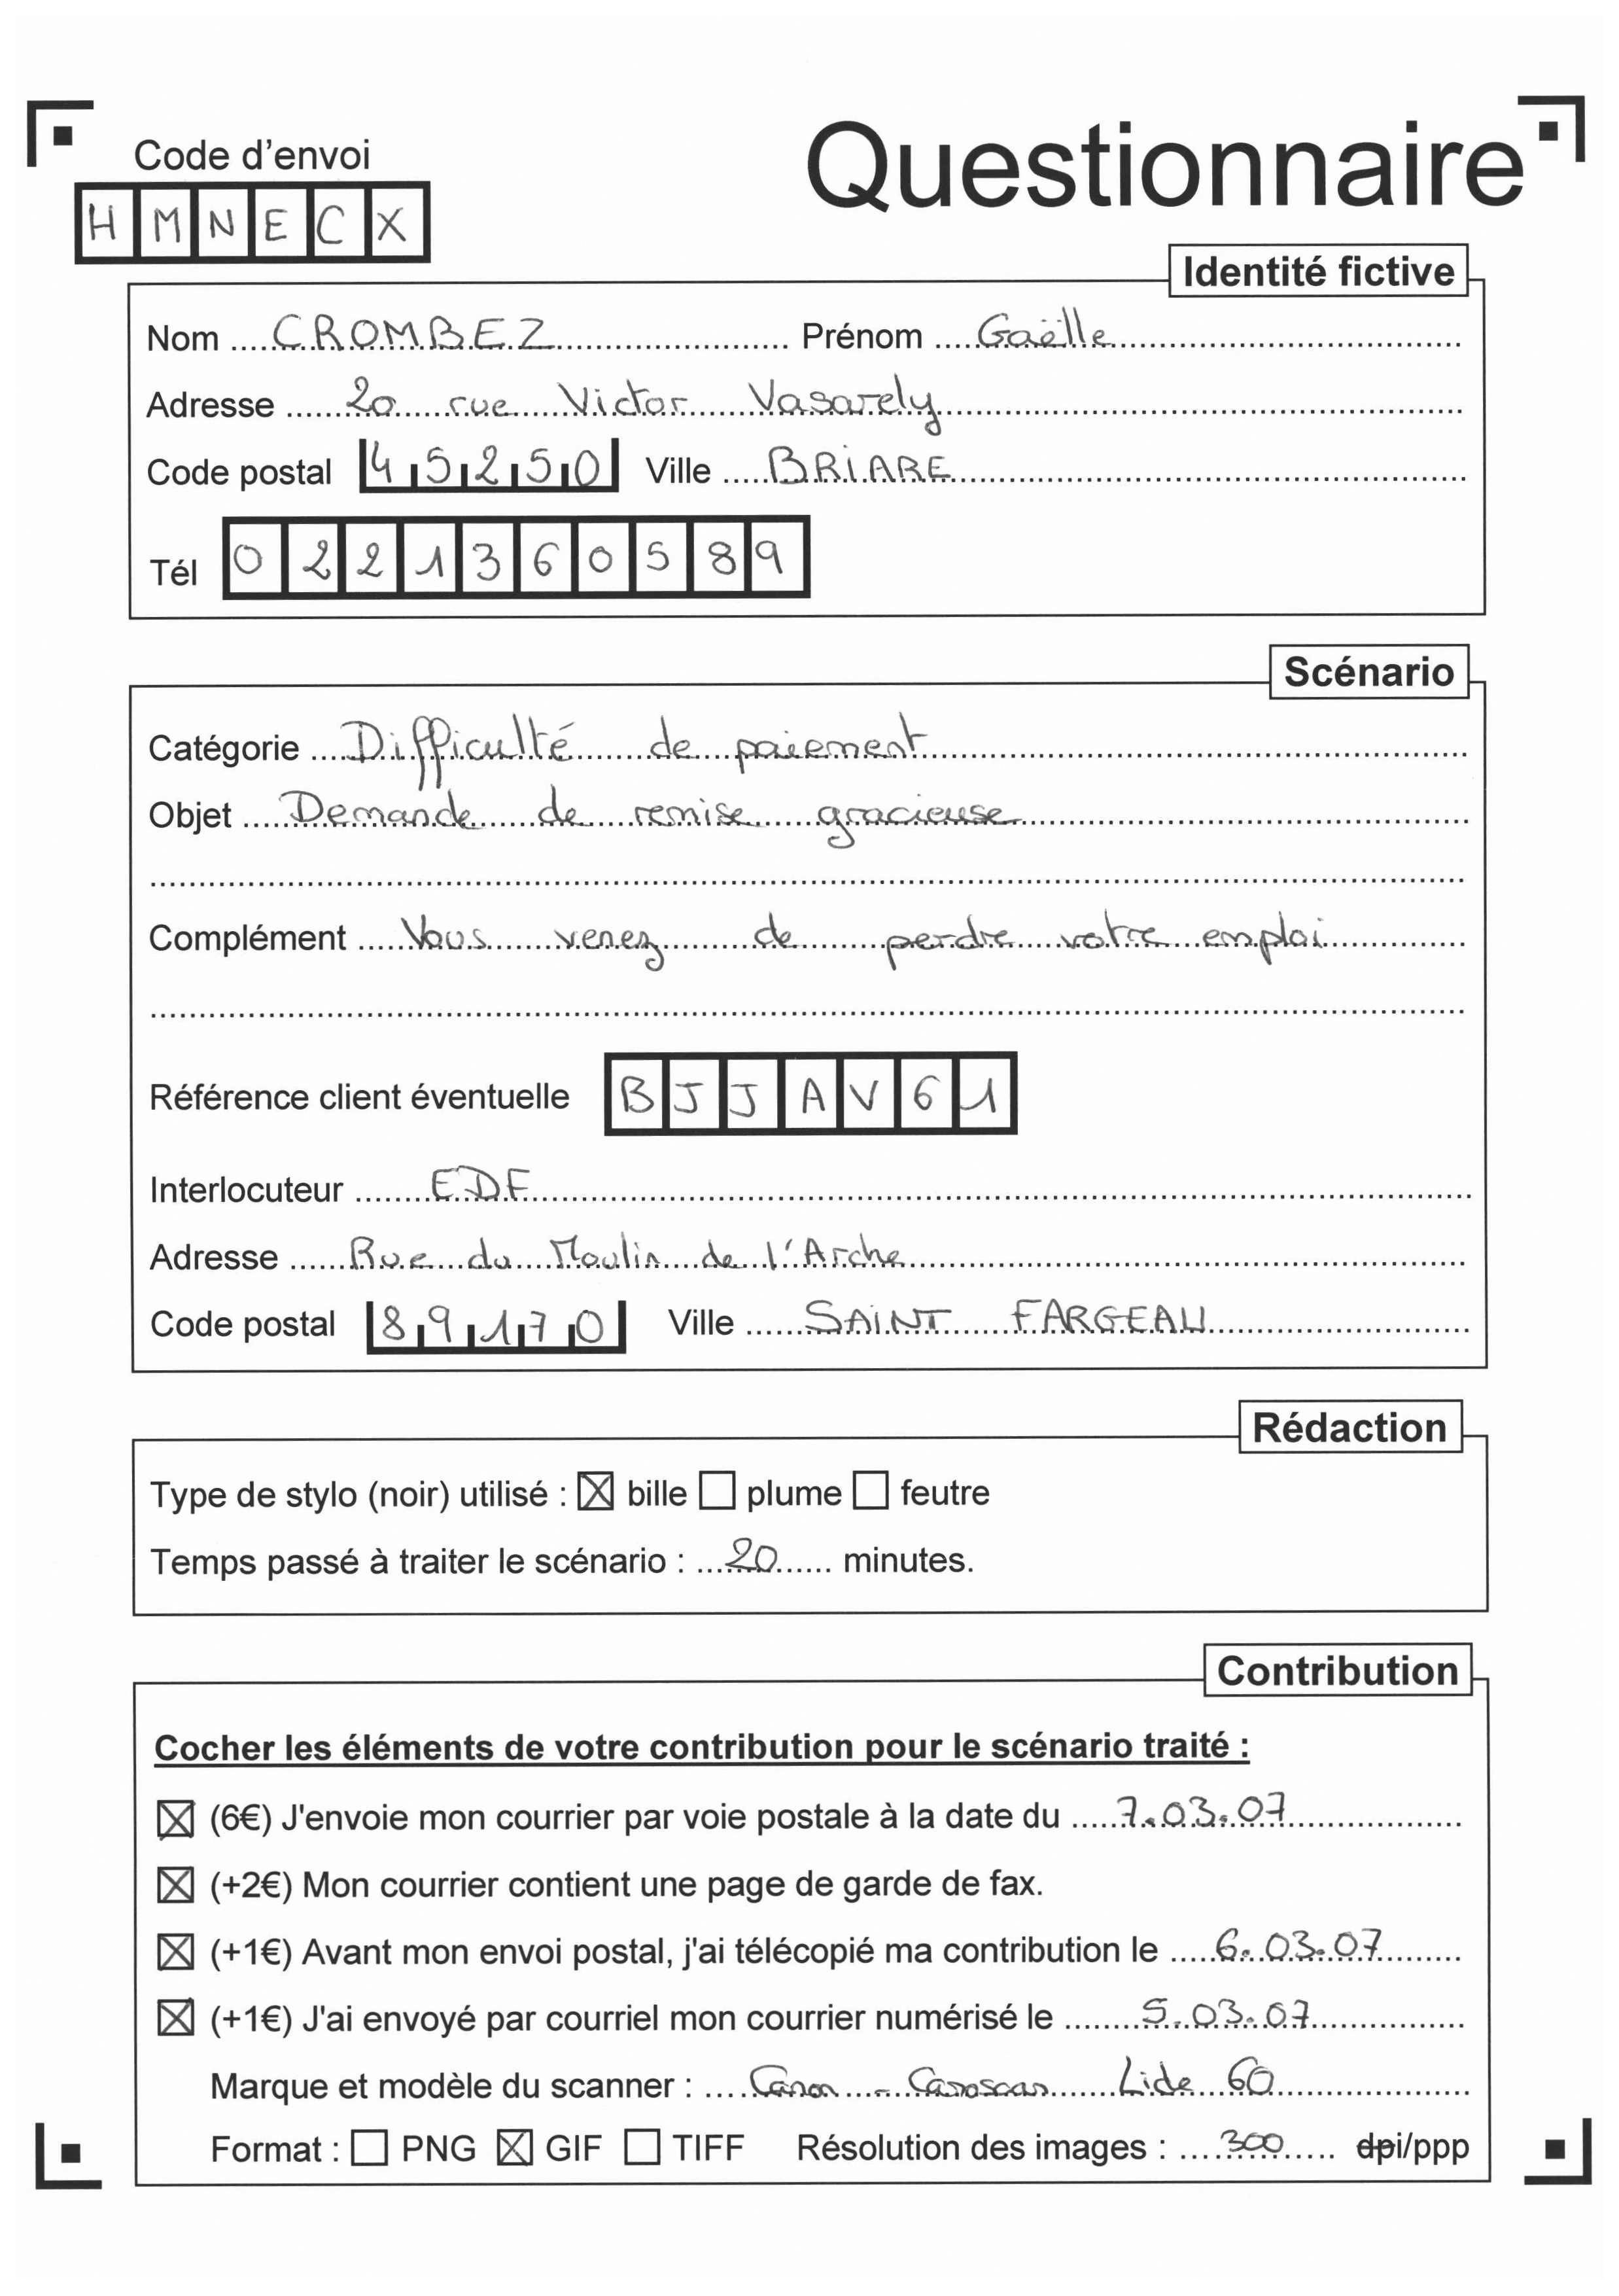 Code d'envoi
Questionnaire
HMNECX
Identité fictive
Nom CROMBEZ Prénom Gaëlle
Adresse 20 rue Victor Vasarely
Code postal 45250 Ville BRIARE
Tél 0221360589
Scénario
Catégorie Difficulté de paiement
Objet Demande de remise gracieuse
Complément Vous venez de perdre votre emploi
Référence client éventuelle BJJAV61
Interlocuteur EDF
Adresse Rue du Moulin de l'Arche
Code postal 89170 Ville SAINT FARGEAU
Rédaction
Type de stylo (noir) utilisé : ☒ bille ☐ plume ☐ feutre
Temps passé à traiter le scénario : 20 minutes.
Contribution
Cocher les éléments de votre contribution pour le scénario traité :
☒ (6€) J'envoie mon courrier par voie postale à la date du 7.03.07
☒ (+2€) Mon courrier contient une page de garde de fax.
☒ (+1€) Avant mon envoi postal, j'ai télécopié ma contribution le 6.03.07
☒ (+1€) J'ai envoyé par courriel mon courrier numérisé le 5.03.07
Marque et modèle du scanner : Canon - Canoscan Lide 60
Format : ☐ PNG ☒ GIF ☐ TIFF Résolution des images : 300 dpi/ppp